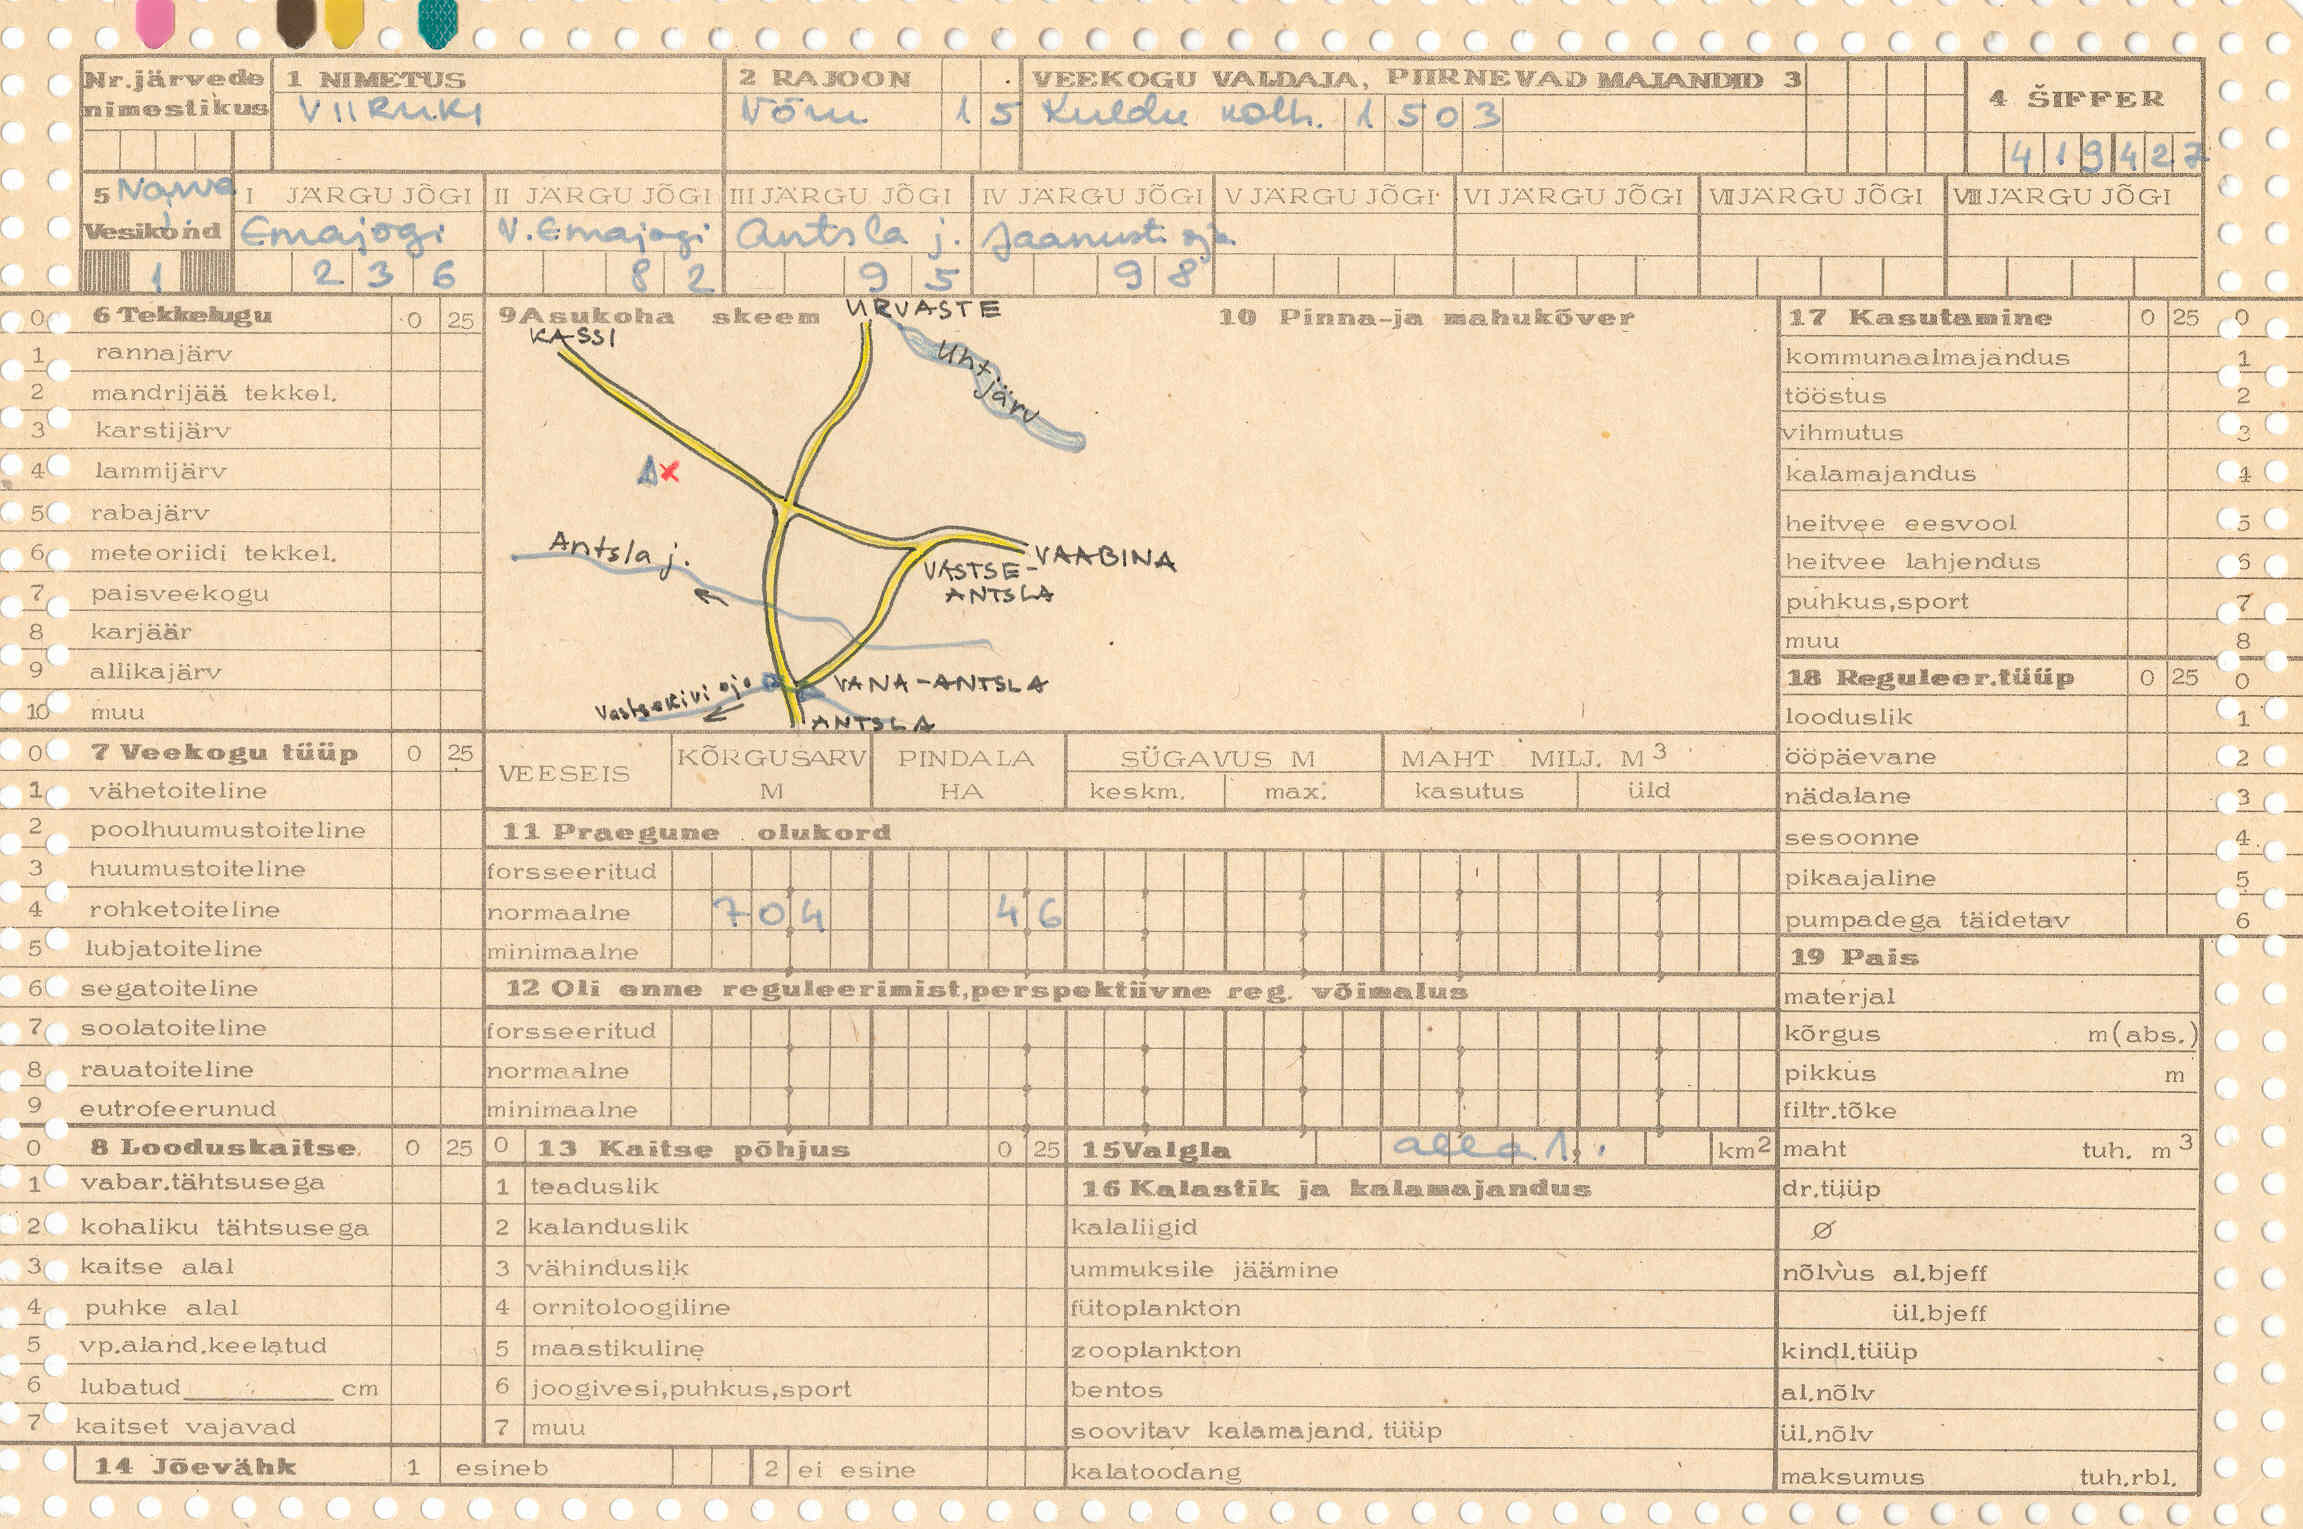 Nr.järvede nimestikus
1 NIMETUS
VIIRUKI
2 RAJOON
Võru 15
VEEKOGU VALDAJA, PIIRNEVAD MAJANDID 3
Kuldre kolh. 1503
4 ŠIFFER
419427
5 Narva
Vesikond
1
I JÄRGU JÕGI
Emajõgi
236
II JÄRGU JÕGI
V. Emajõgi
82
III JÄRGU JÕGI
Antsla j.
95
IV JÄRGU JÕGI
Jaanusti oja
98
V JÄRGU JÕGI
VI JÄRGU JÕGI
VII JÄRGU JÕGI
VIII JÄRGU JÕGI
0 6 Tekkelugu 0 25
1 rannajärv
2 mandrijää tekkel.
3 karstijärv
4 lammijärv
5 rabajärv
6 meteoriidi tekkel.
7 paisveekogu
8 karjäär
9 allikajärv
10 muu
0 7 Veekogu tüüp 0 25
1 vähetoiteline
2 poolhuumustoiteline
3 huumustoiteline
4 rohketoiteline
5 lubjatoiteline
6 segatoiteline
7 soolatoiteline
8 rauatoiteline
9 eutrofeerunud
0 8 Looduskaitse 0 25
1 vabar.tähtsusega
2 kohaliku tähtsusega
3 kaitse alal
4 puhke alal
5 vp.aland.keelatud
6 lubatud cm
7 kaitset vajavad
14 Jõevähk 1 esineb 2 ei esine
9 Asukoha skeem
URVASTE
KASSI
Uhtjärv
Antsla j.
VAABINA
VASTSE-
ANTSLA
VANA-ANTSLA
Vastsekivi oja
ANTSLA
10 Pinna-ja mahukõver
VEESEIS
KÕRGUSARV M
PINDALA HA
SÜGAVUS M
keskm. max.
MAHT MILJ. M3
kasutus üld
11 Praegune olukord
forsseeritud
normaalne 704 46
minimaalne
12 Oli enne reguleerimist,perspektiivne reg. võimalus
forsseeritud
normaalne
minimaalne
0 13 Kaitse põhjus 0 25
1 teaduslik
2 kalanduslik
3 vähinduslik
4 ornitoloogiline
5 maastikuline
6 joogivesi,puhkus,sport
7 muu
15 Valgla alla 1. km2
16 Kalastik ja kalamajandus
kalaliigid
ummuksile jäämine
fütoplankton
zooplankton
bentos
soovitav kalamajand. tüüp
kalatoodang
17 Kasutamine 0 25 0
kommunaalmajandus 1
tööstus 2
vihmutus 3
kalamajandus 4
heitvee eesvool 5
heitvee lahjendus 6
puhkus,sport 7
muu 8
18 Reguleer.tüüp 0 25 0
looduslik 1
ööpäevane 2
nädalane 3
sesoonne 4
pikaajaline 5
pumpadega täidetav 6
19 Pais
materjal
kõrgus m(abs.)
pikkus m
filtr.tõke
maht tuh. m3
dr.tüüp
Ø
nõlvus al.bjeff
ül.bjeff
kindl.tüüp
al.nõlv
ül.nõlv
maksumus tuh.rbl.